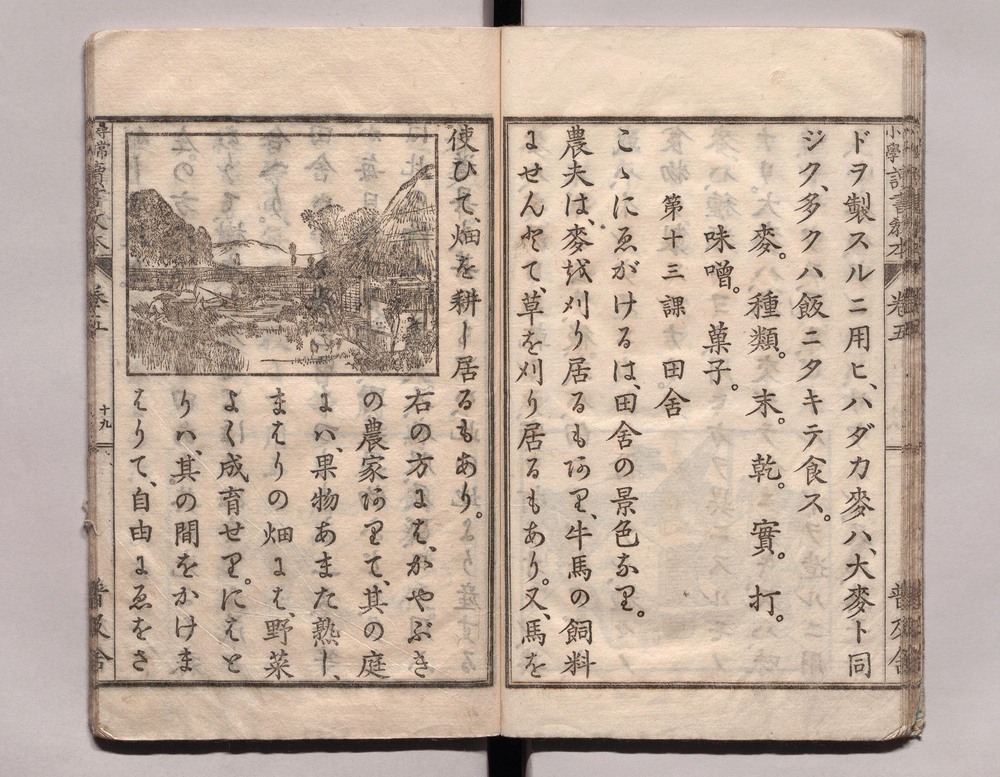 ドヲ製スルニ用ヒ、ハダカ麥ハ、大麥ト同
ジク、多クハ飯ニタキテ食ス。
麥。種類。末。乾。實。打。
味噌。菓子。
第十三課 田舍
こゝにゑがけるは、田舍の景色なり。
農夫は、麥を刈り居るもあり、牛馬の飼料
にせんとて、草を刈り居るもあり。又、馬を
使ひて、畑を耕し居るもあり。
右の方には、かやぶき
の農家ありて、其の庭
には、果物あまた熟し、
まはりの畑には、野菜
よく成育せり。にはと
りハ、其の間をかけま
はりて、自由にゑをさ
小學讀書教本
卷五
普及舍
尋常讀書教本
卷五
十九
普及舍